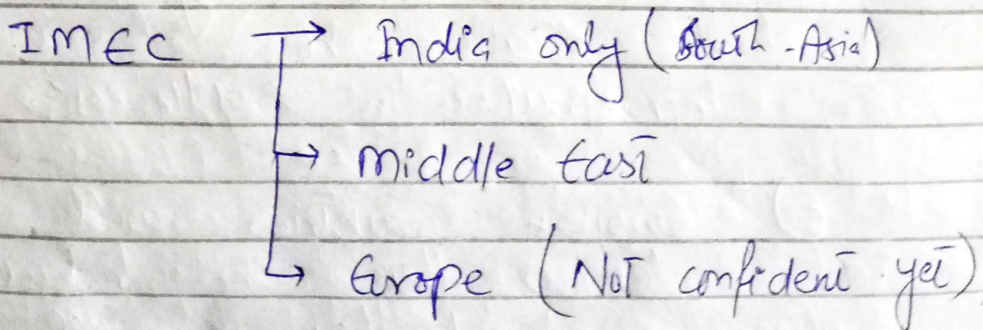 IMEC → India only (South-Asia)
→ Middle East
→ Europe (Not confident yet)